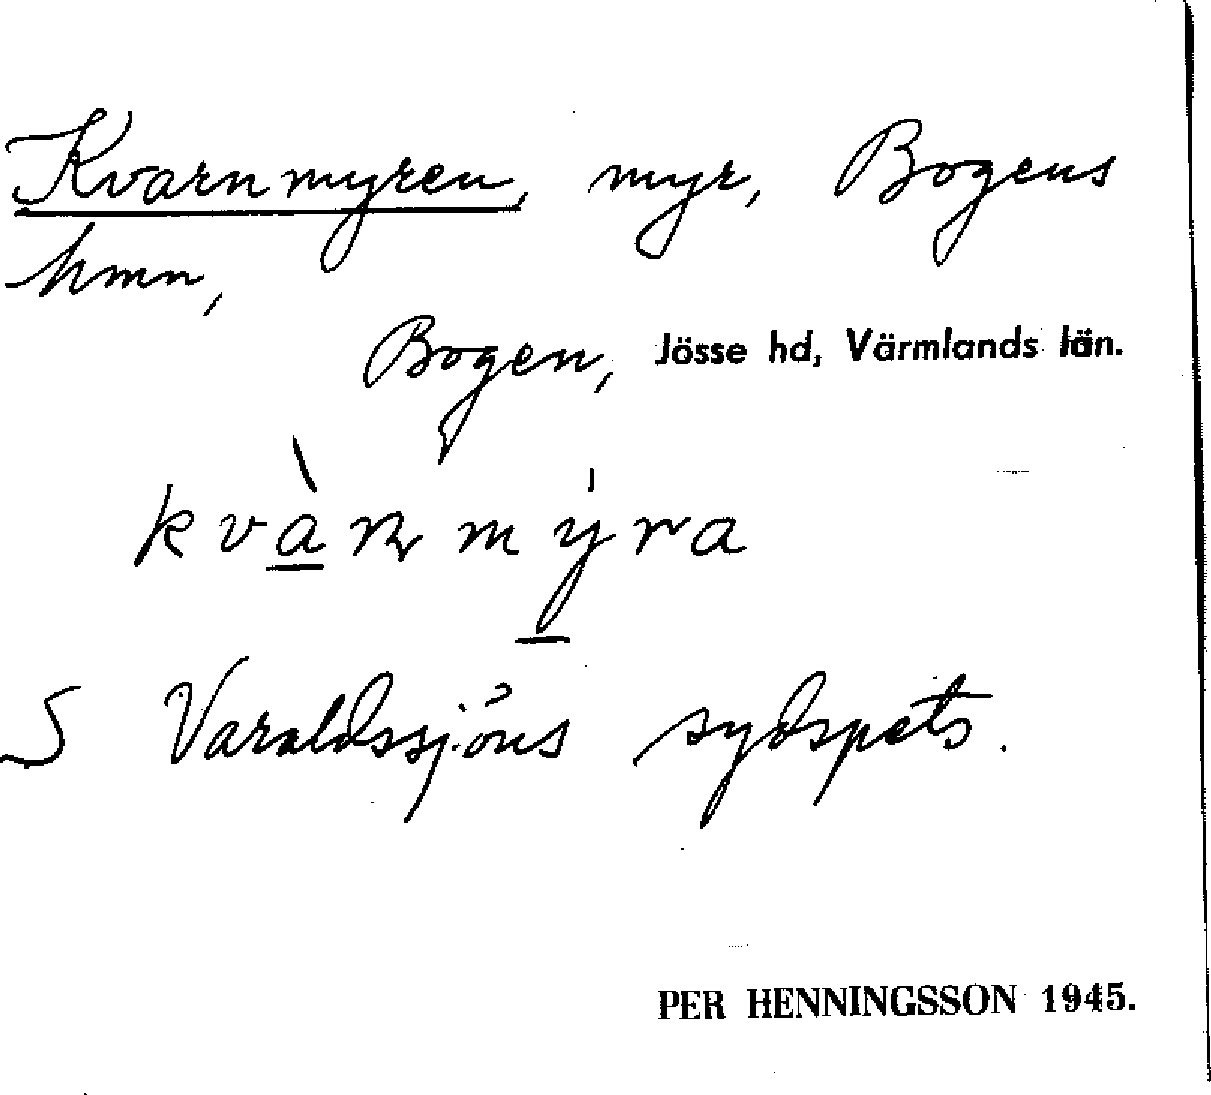 Kvarnmyren, myr, Bogens
hmn,
Bogen, Jösse hd, Värmlands län.
kvàɳmýra
S Varaldssjöns sydspets.
PER HENNINGSSON 1945.